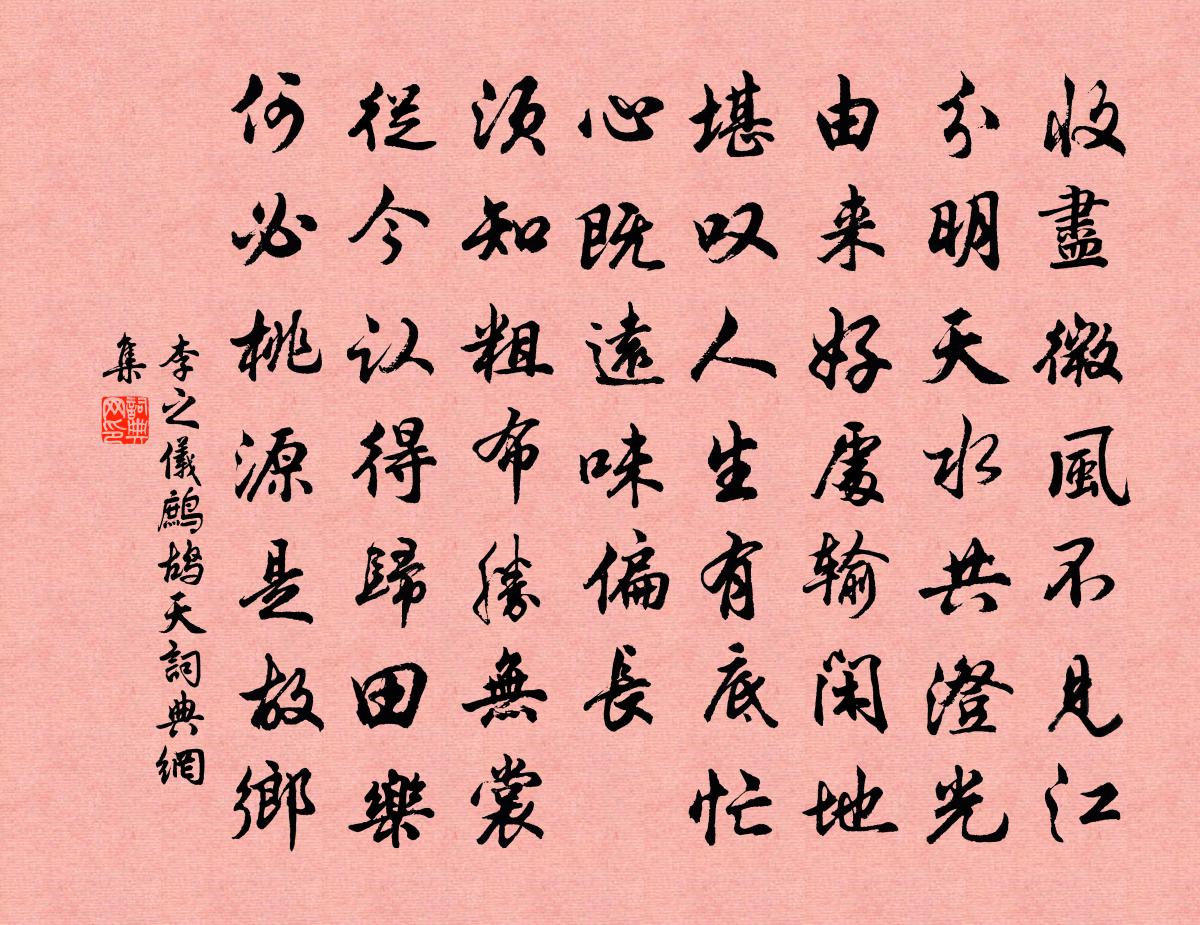 收盡微風不見江
分明天水共澄光
由来好處輸閑地
堪叹人生有底忙
心既遠味偏長
須知粗布勝無裳
從今认得歸田樂
何必桃源是故鄉
李之儀鷓鴣天詞典網
集
詞典網印